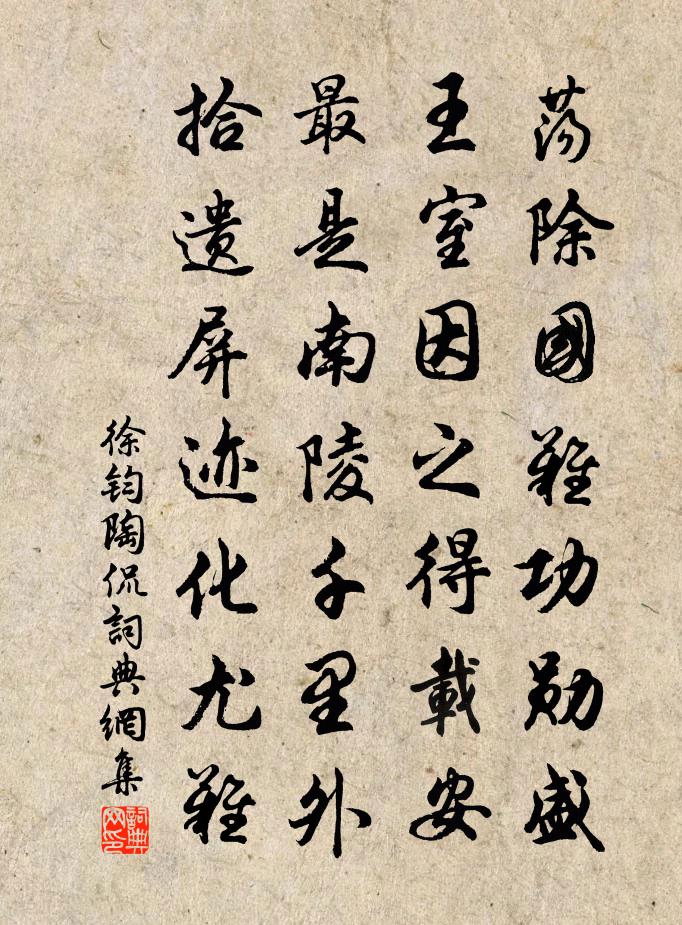 荡除國難功勋盛
王室因之得載安
最是南陵千里外
拾遗屏迹化尤難
徐钧陶侃詞典網集
詞典網印